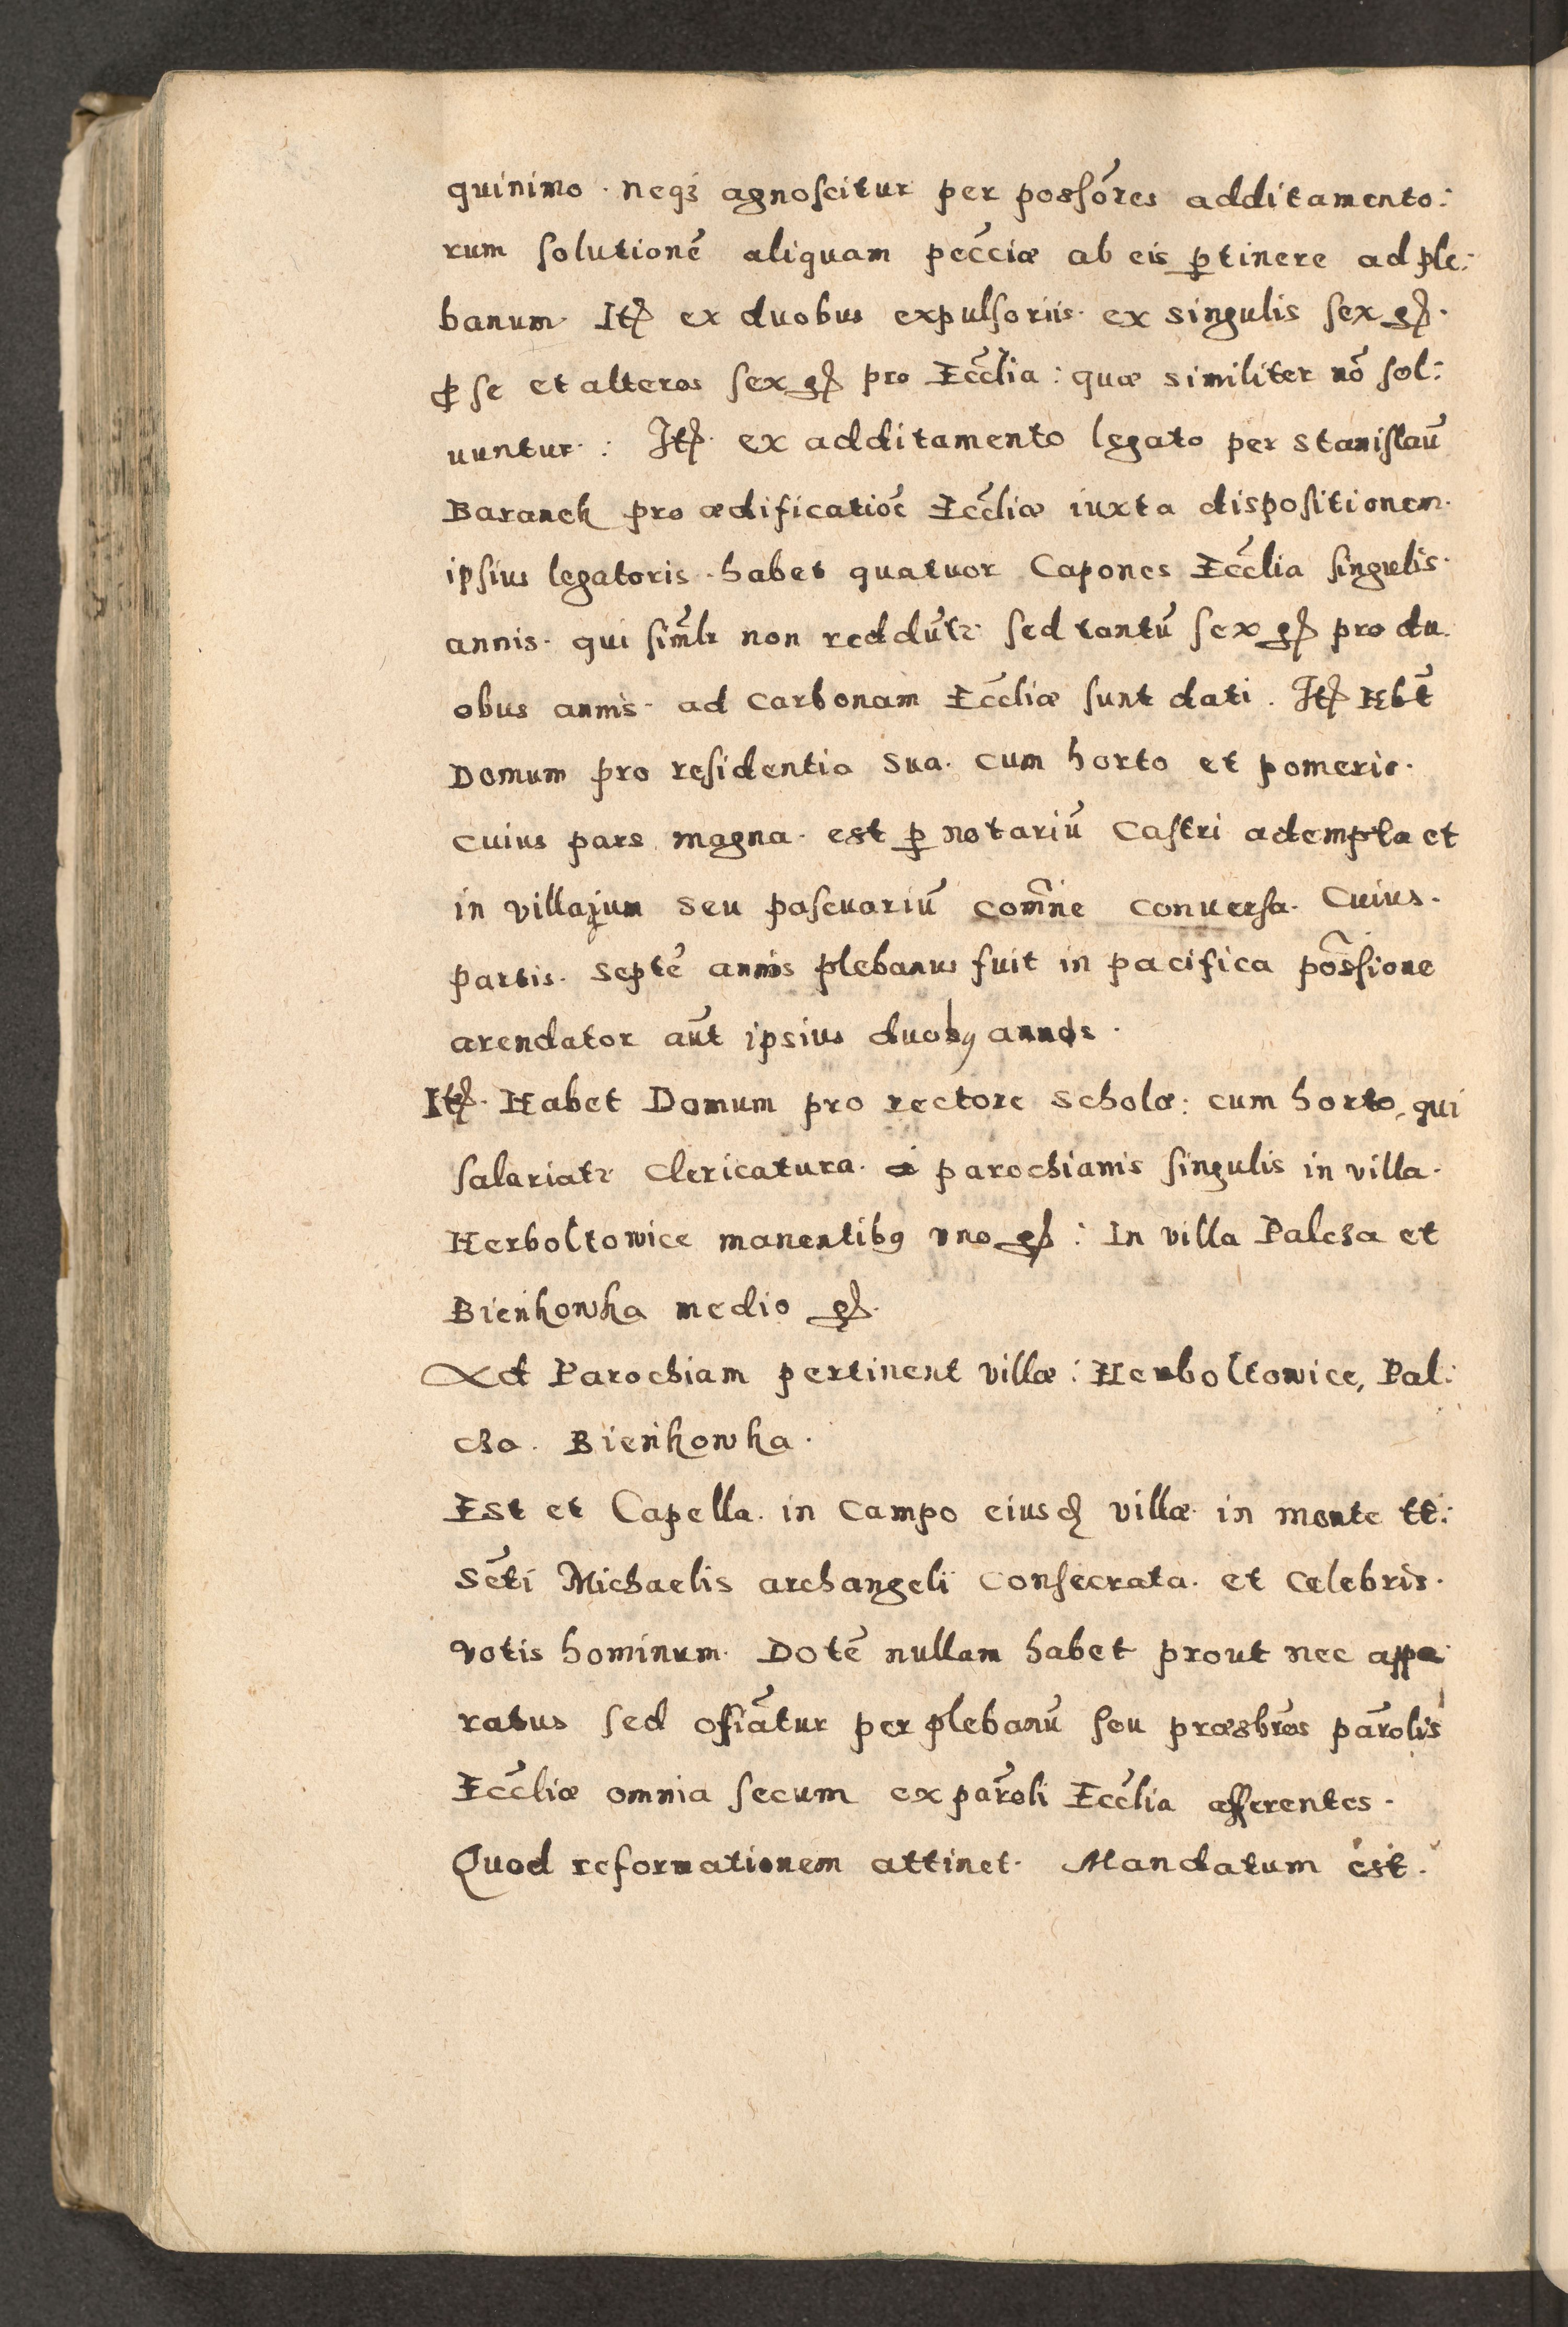 quinimo · neqꝫ agnoscitur per possores additamento:
rum solutionē aliquam pecciæ ab eis ꝑtinere ad ple:
banum Itꝭ ex duobus expulsoriis· ex singulis sex gꝭ·
ꝓ se et alteros sex gꝭ pro Ecclia : quæ similiter nō sol:
uuntur · : Itꝭ· ex additamento legato per stanislaū
Baranek pro ædificatioē Eccliæ iuxta dispositionem·
ipsius legatoris · habet quatuor Capones Ecclia singulis·
annis· qui simlr non reddūtr sed tantū sex gꝭ pro du
obus annis· ad carbonam Eccliæ sunt dati . Itꝭ Hbt
Domum pro residentia sua· cum horto et pomerio·
cuius pars magna· est ꝑ notariū Castri adempta et
in villajum seu pascuariū comne conuersa· Cuius·
partis· septē annis plebanus fuit in pacifica possione
arendator aūt ipsius duobꝯ annos ·
Itꝭ· Habet Domum pro rectore scholæ : cum horto, qui
salariatr clericatura· a parochianis singulis in villa·
Herboltowice manentibꝯ vno gꝭ : In villa Palcza et
Bieńkowka medio gꝭ·
Ad Parochiam pertinent villæ : Herboltowice, Pal:
cza· Bieńkowka ·
Est et Capella· in campo eiusdꝭ villæ· in monte tt:
Scti Michaelis archangeli consecrata· et celebris·
votis hominum· Dotē nullam habet prout nec appa:
ratus sed offiatur per plebanū seu præsbros parolis
Eccliæ omnia secum ex paroli Ecclia afferentes ·
Quod reformationem attinet· Mandatum est ·